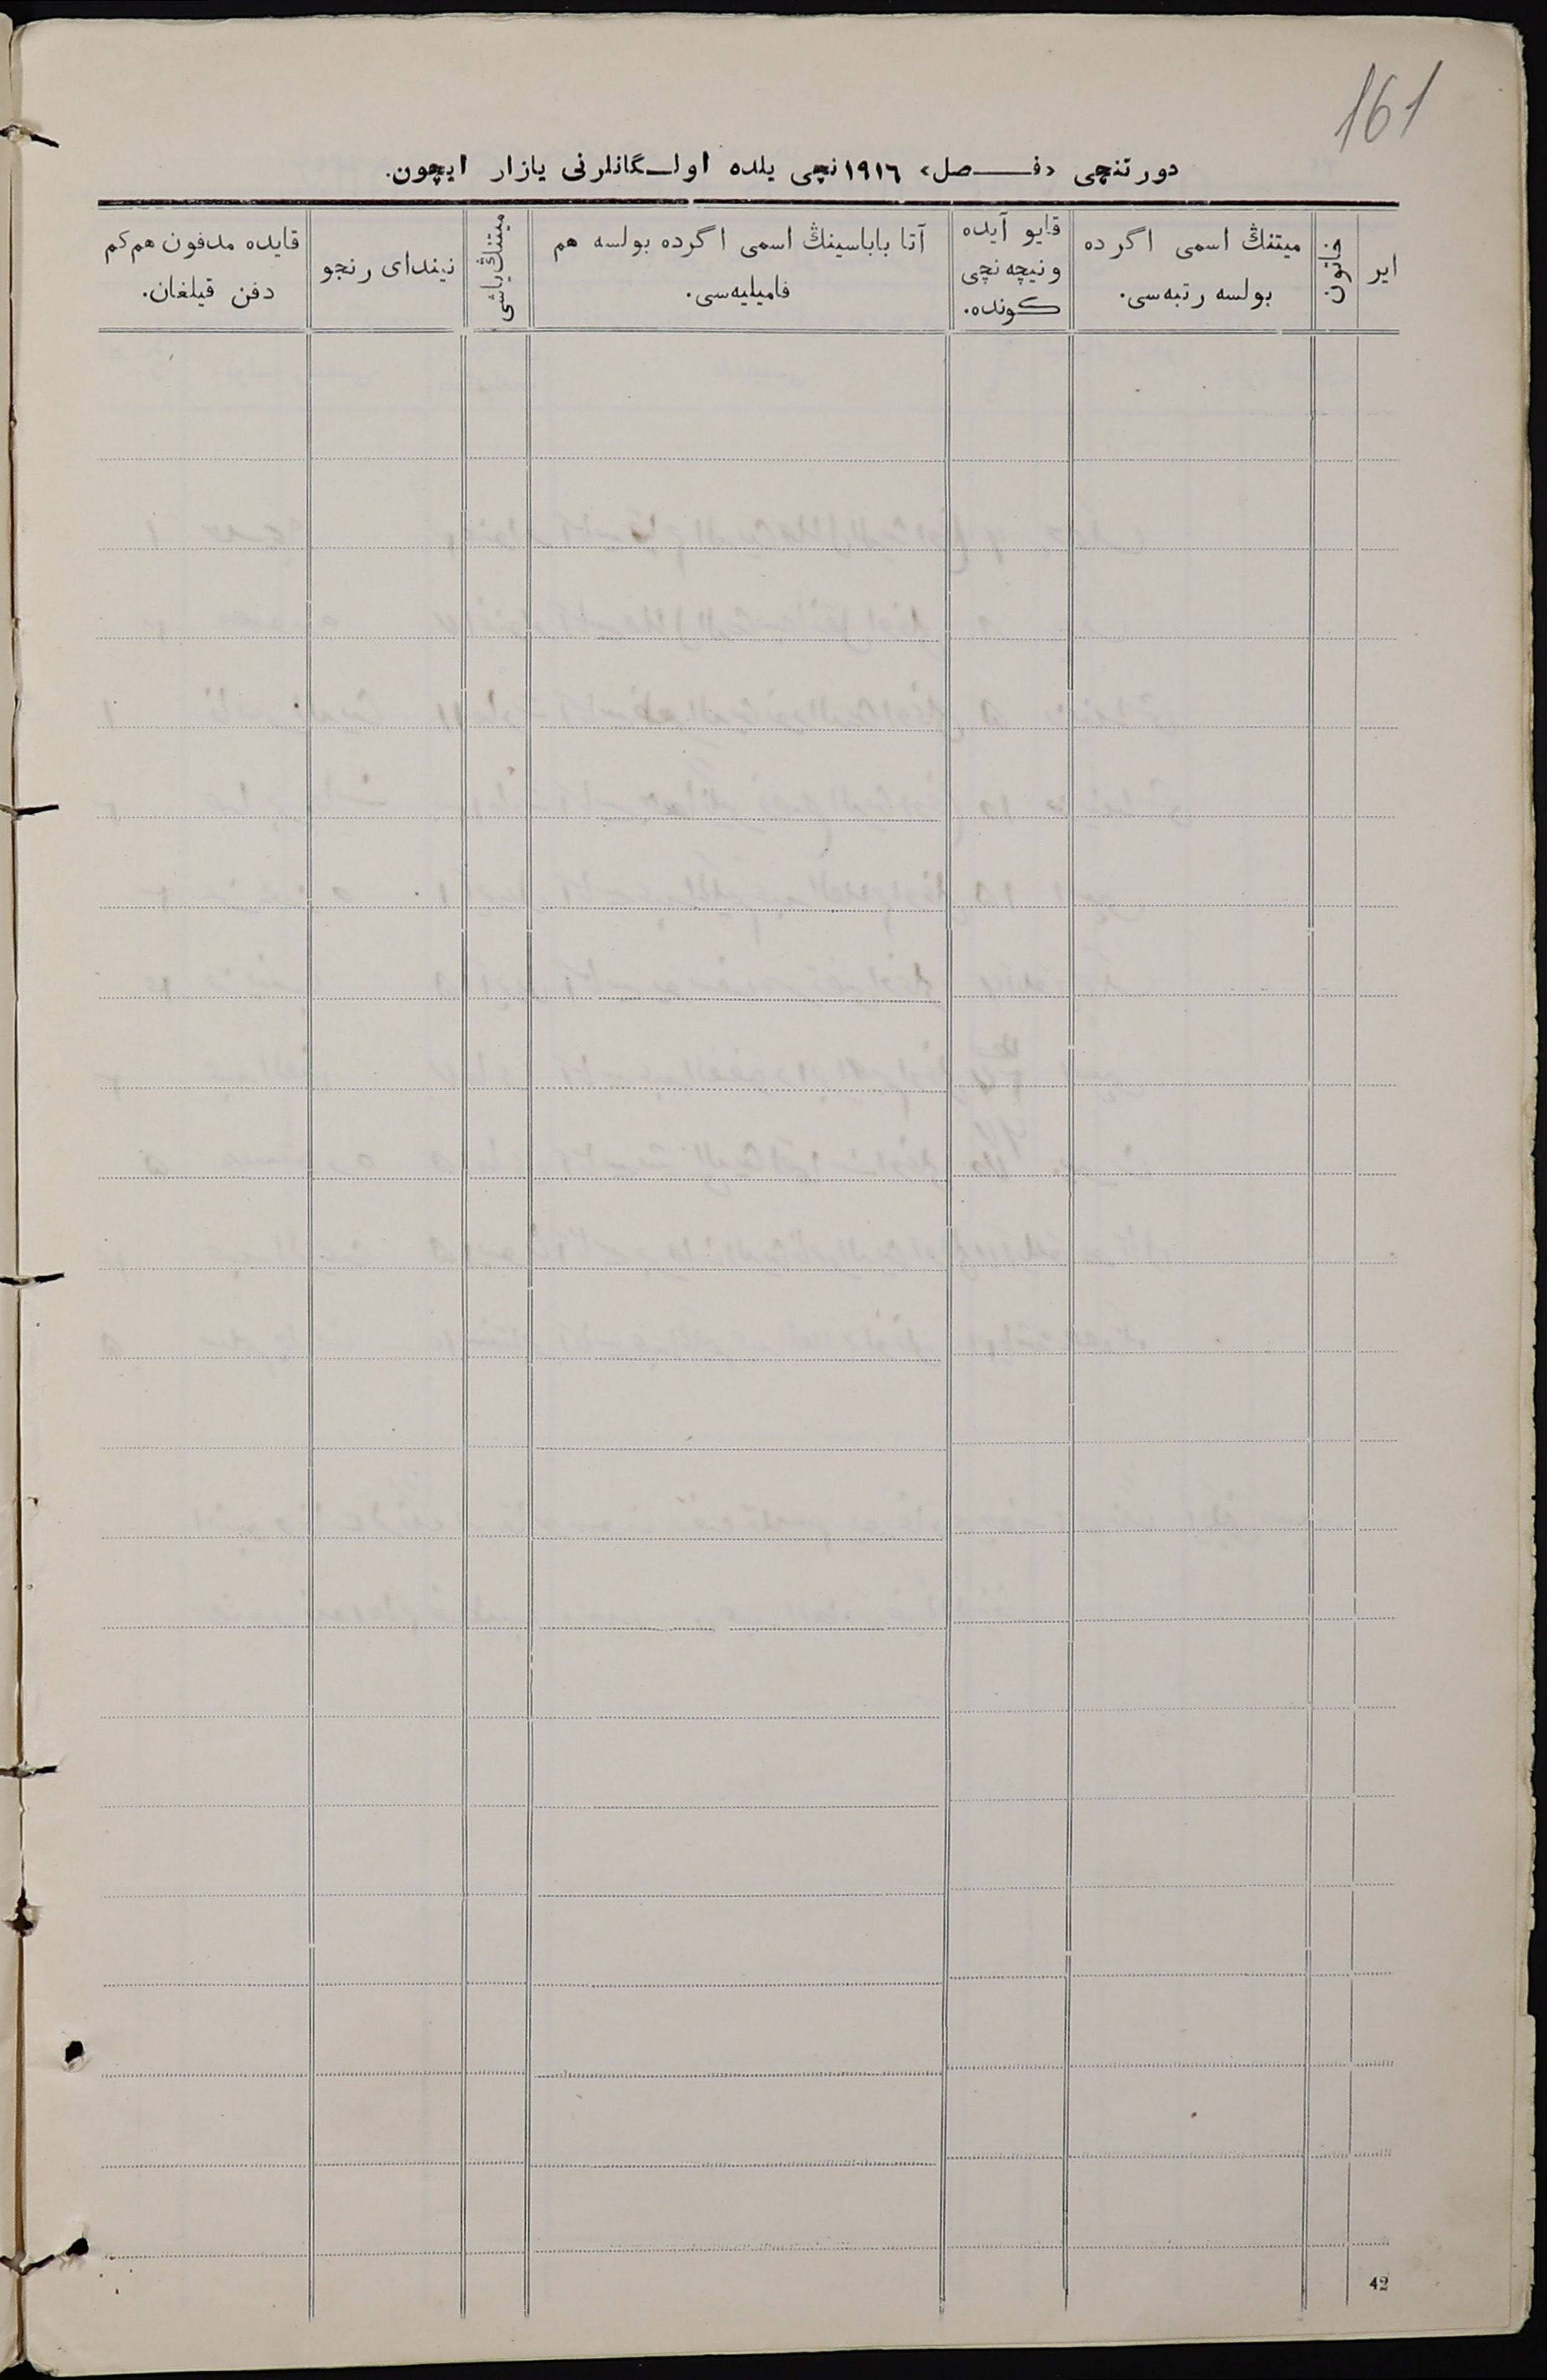 161
دورتنچی «فـــصل» ١٩١٦نچی یلده اولـگانلرنی یازار ایچون.
ایر
خاتون
میتنڭ اسمی اگر ده
بولسه رتبه‌سی.
قایو آیده
ونیچه نچی
کونده.
آتا باباسینڭ اسمی اگرده بولسه هم
فامیلیه‌سی.
میتنڭ یاشی
نیندای رنجو
قایده مدفون هم کم
دفن قیلغان.
42